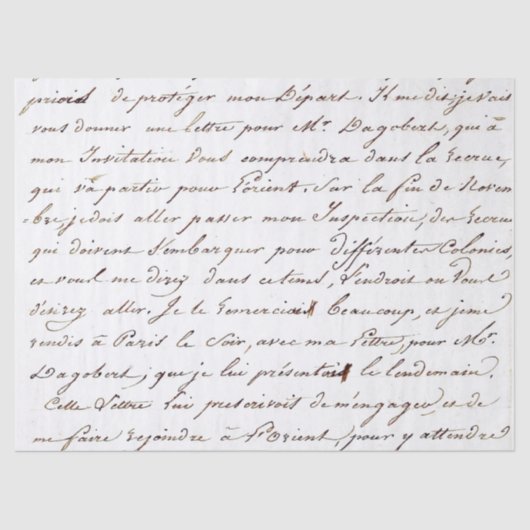 priois de protéger mon Départ. Il me dit, je vais
vous donner une lettre pour Mr. Dagobert, qui à
mon Invitation Vous comprendra dans la Recrue,
qui va partir pour l'orient. Sur la fin de Novem
=bre, je dois aller passer mon Inspection, des Recrues
qui doivent s'embarquer pour différentes Colonies,
et vous me direz dans ce tems, l'endroit ou Vous
désirez aller. Je le remerciais beaucoup, et je me
rendis à Paris le Soir, avec ma Lettre, pour Mr.
Dagobert, que je lui présentais le lendemain.
Cette Lettre lui prescrivoit de m'engager, et de
me faire rejoindre à l'Orient, pour y attendre